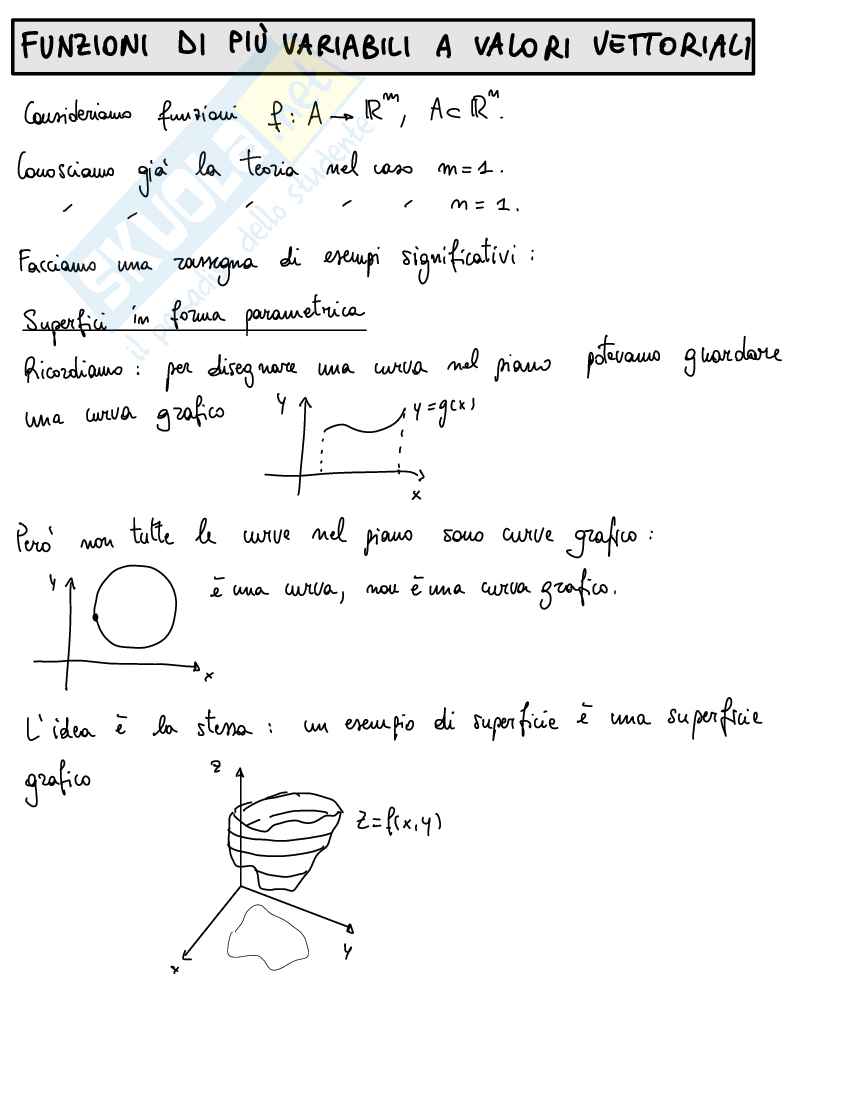 FUNZIONI DI PIÙ VARIABILI A VALORI VETTORIALI
Consideriamo funzioni f: A → ℝᵐ, A ⊂ ℝⁿ.
Conosciamo già la teoria nel caso m=1.
〃 〃 〃 〃 〃 n=1.
Facciamo una rassegna di esempi significativi:
Superfici in forma parametrica
Ricordiamo: per disegnare una curva nel piano potevamo guardare
una curva grafico
y
y=g(x)
x
Però non tutte le curve nel piano sono curve grafico:
y
è una curva, non è una curva grafico.
x
L'idea è la stessa: un esempio di superficie è una superficie
grafico
z
z=f(x,y)
x
y
SKUOLA.net
il paradiso dello studente